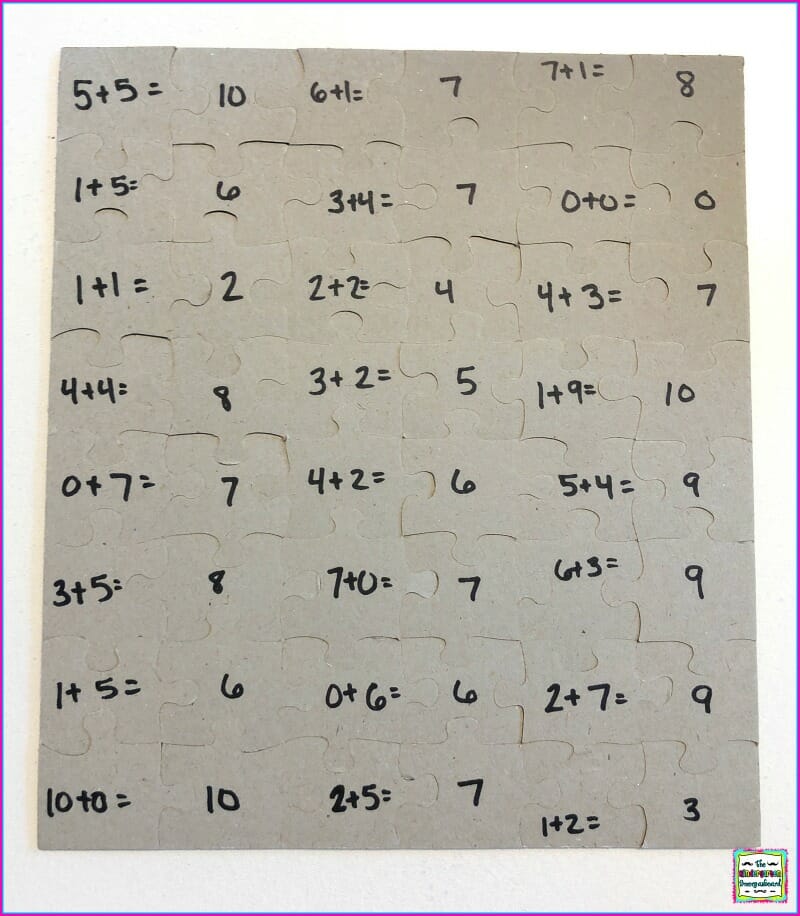 5+5= 10 6+1= 7 7+1= 8
1+5= 6 3+4= 7 0+0= 0
1+1= 2 2+2= 4 4+3= 7
4+4= 8 3+2= 5 1+9= 10
0+7= 7 4+2= 6 5+4= 9
3+5= 8 7+0= 7 6+3= 9
1+5= 6 0+6= 6 2+7= 9
10+0= 10 2+5= 7 1+2= 3
The
kindergarten
Smorgasboard